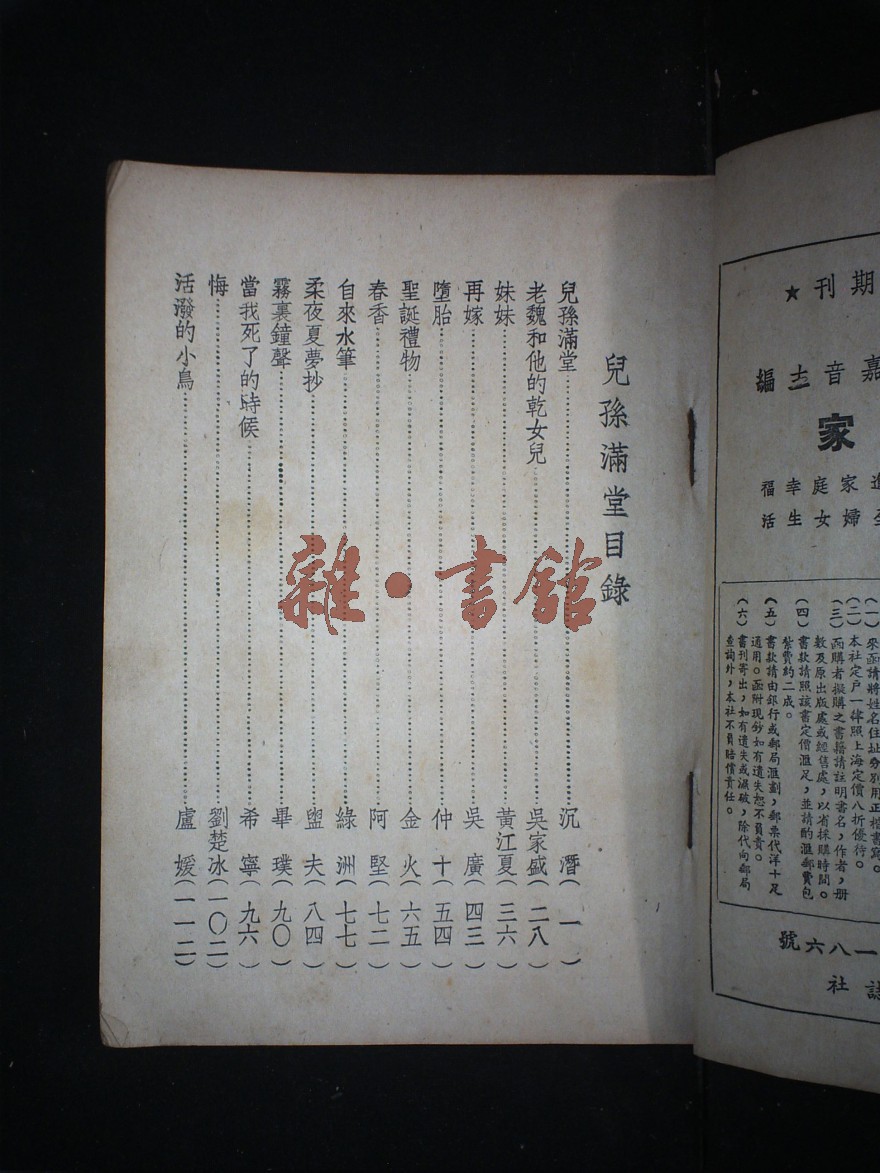 兒孫滿堂目錄
兒孫滿堂……沉潛(一)
老魏和他的乾女兒……吳家盛(二八)
妹妹……黃江夏(三六)
再嫁……吳廣(四三)
墮胎……仲十(五四)
聖誕禮物……金火(六五)
春香……阿堅(七二)
自來水筆……綠洲(七七)
柔夜夏夢抄……盥夫(八四)
霧裏鐘聲……畢璞(九〇)
當我死了的時候……希寧(九六)
悔……劉楚冰(一〇二)
活潑的小鳥……盧媛(一一二)
雜·書館
★刊期
編士音嘉
家
福幸庭家
活生女婦
(一)來函請將姓名住址分別用正楷書寫。
(二)本社定戶一律照上海定價八折優待。
(三)函購者擬購之書籍請註明書名,作者,册
數及原出版處或經售處,以省採購時間。
(四)書款請照該書定價滙足,並請酌滙郵費包
紮費約二成。
(五)書款請由銀行或郵局滙劃,郵票代洋十足
通用。函附現鈔如有遺失恕不負責。
(六)書刊寄出,如有遺失或減破,除代向郵局
查詢外,本社不負賠償責任。
號六八一
社誌